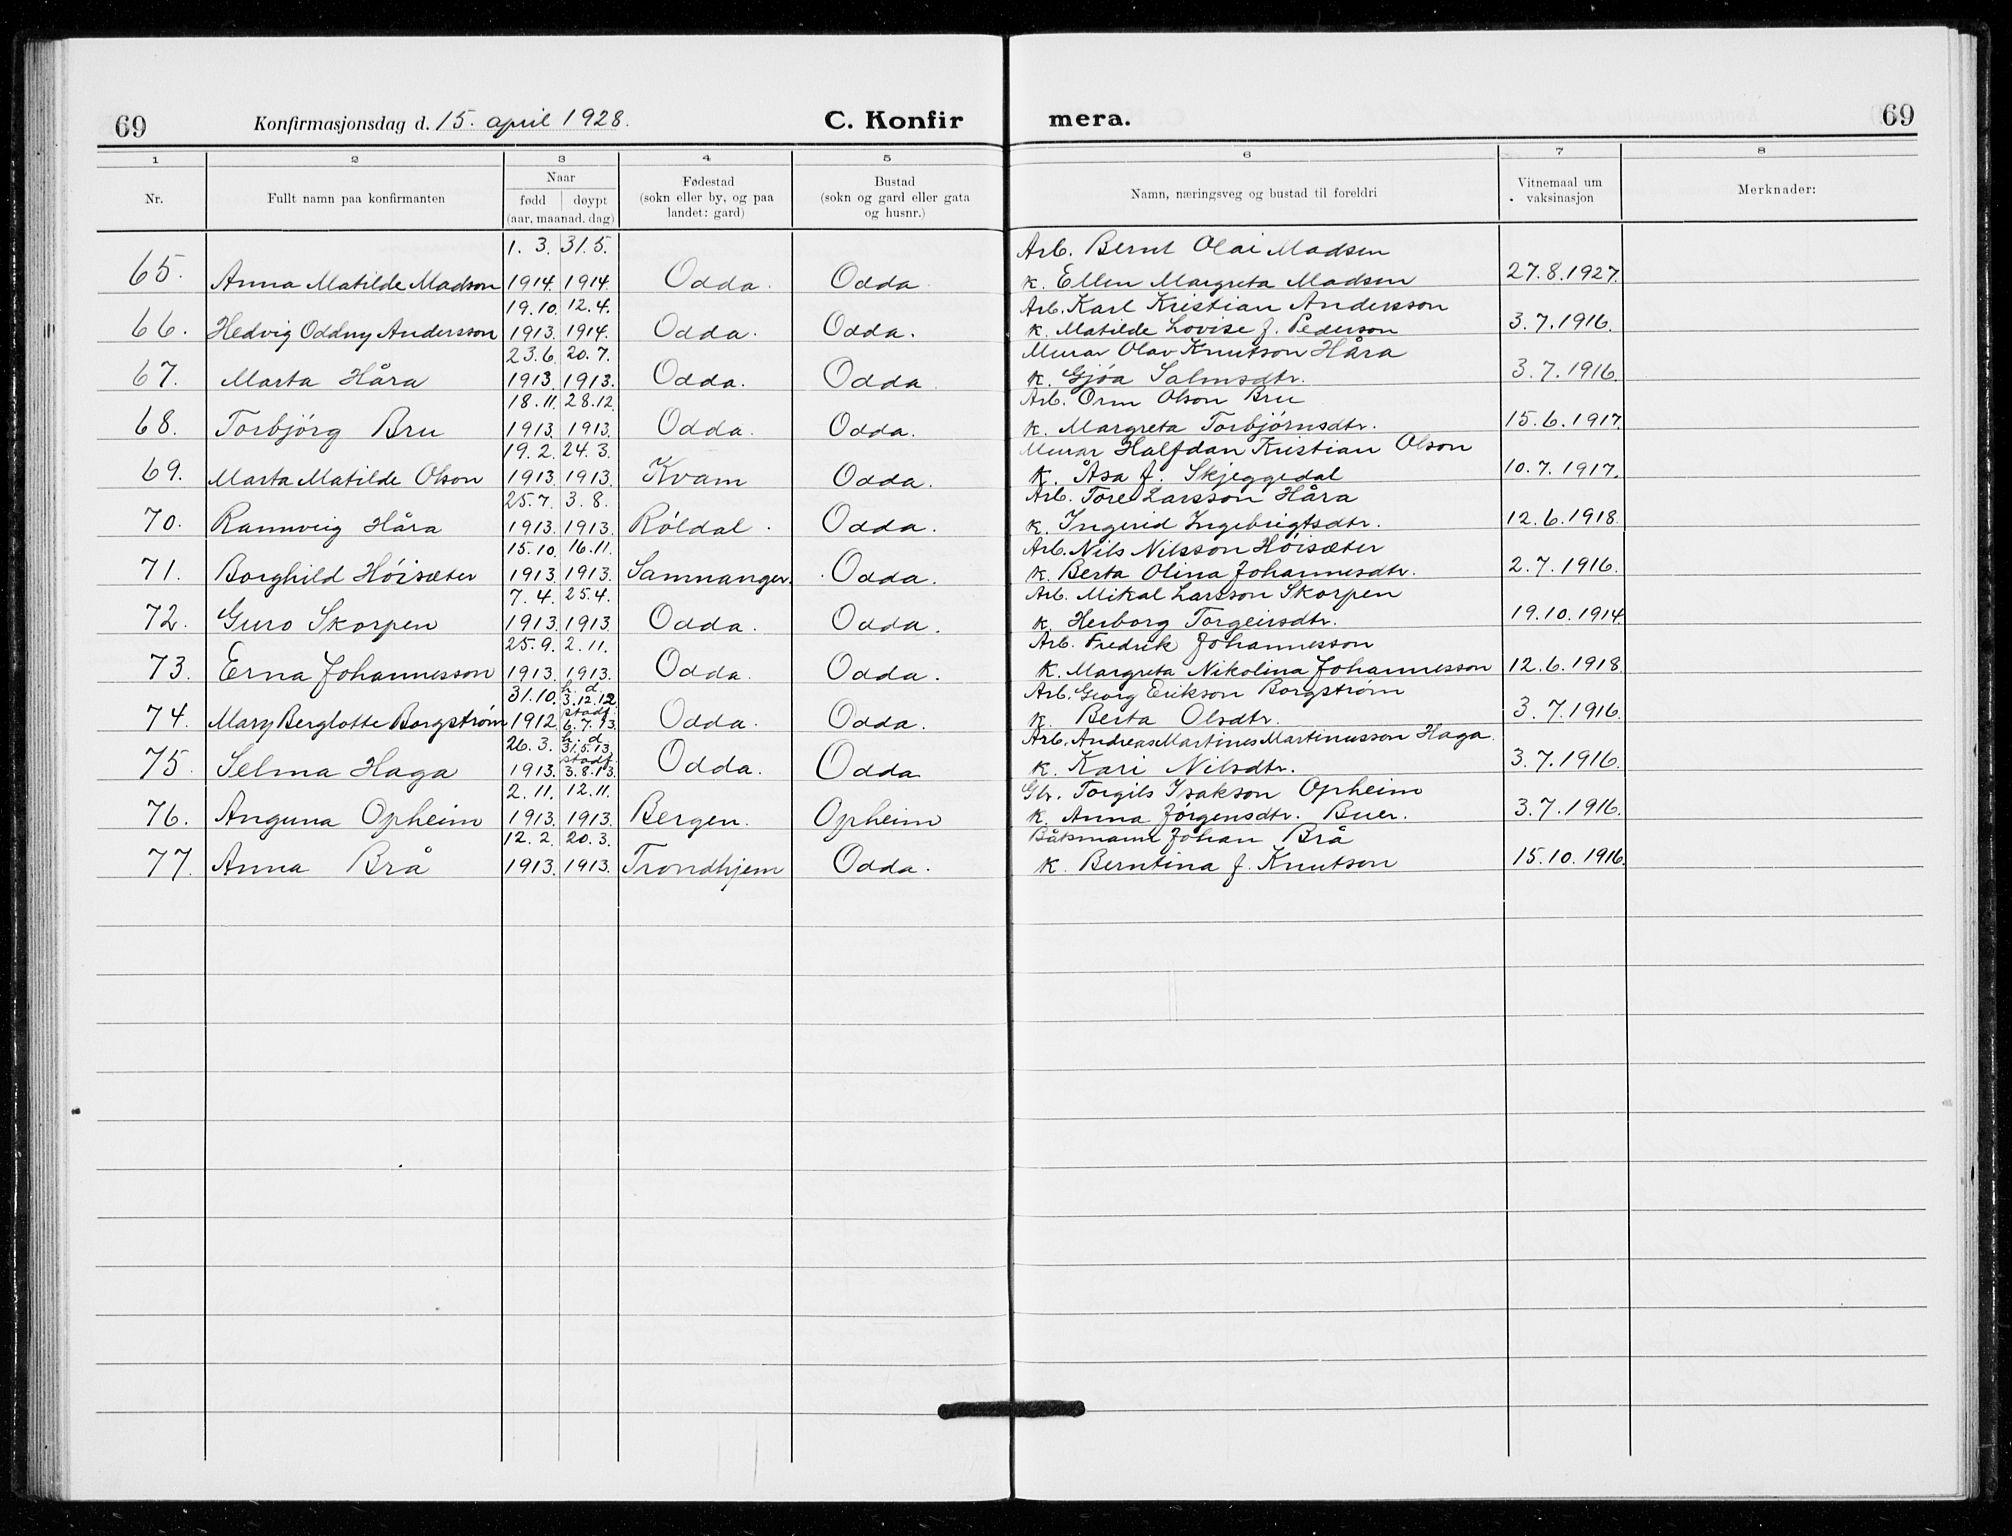 69 Konfirmasjonsdag d. 15. april 1928. C. Konfir mera. 69
1 2 3 4 5 6 7 8
Nr. Fullt namn paa konfirmanten Naar født døypt (aar, maanad, dag) Fødestad (sokn eller by, og paa landet: gard) Bustad (sokn og gard eller gata og husnr.) Namn, næringsveg og bustad til foreldri Vitnemaal um vaksinasjon Merknader:
1. 3. 31.5. Arb. Bernt Olai Madsen
65. Anna Matilde Madson 1914. 1914. Odda. Odda k. Ellen Margreta Madsen 27.8.1927.
19.10. 12.4. Arb. Karl Kristian Andersson
66. Hedvig Oddny Andersson 1913. 1914. Odda. Odda. k. Matilde Lovise f. Pederson 3.7.1916.
23.6. 20.7. Murar Olav Knutson Håra
67. Marta Håra 1913. 1913. Odda. Odda k. Gjóa Salmsdtr. 3.7.1916.
18.11. 28.12. Arb. Orm Olson Bru
68. Torbjórg Bru 1913. 1913. Odda. Odda. k. Margreta Torbjórnsdtr. 15.6.1917.
19.2. 24.3. Murar Halfdan Kristian Olson
69. Marta Matilde Olson 1913. 1913. Kvam Odda. k. Åsa f. Skjeggedal 10.7.1917.
25.7. 3.8. Arb. Tore Larsson Håra
70. Rannveig Håra 1913. 1913. Róldal. Odda. k. Ingerid Ingebrigtsdtr. 12.6.1918.
15.10. 16.11. Arb. Nils Nilsson Hóisæter
71. Borghild Hóisæter 1913. 1913. Samnanger. Odda. k. Berta Olina Johannesdtr. 2.7.1916.
7.4. 25.4. Arb. Mikal Larsson Skorpen
72. Guro Skorpen 1913. 1913. Odda. Odda. k. Herborg Torgeirsdtr. 19.10.1914
25.9. 2.11. Arb. Fredrik Johannesson
73. Erna Johannesson 1913. 1913. Odda. Odda. k. Margreta Nikolina Johannesson 12.6.1918.
31.10. h. d. 3.12.12 stadf. Arb. Georg Erikson Borgstrøm
74. Mary Berglotte Borgstrøm 1912. 6.7.13. Odda. Odda. k. Berta Olsdtr. 3.7.1916.
26.3. h. d. 31.5.13. stadf. Arb. Andreas Martines Martinusson Haga.
75. Selma Haga 1913. 3.8.13. Odda. Odda k. Kari Nilsdtr. 3.7.1916.
2.11. 12.11. Gbr. Torgils Isakson Opheim
76. Anguna Opheim 1913. 1913. Bergen. Opheim k. Anna Jórgensdtr. Buer. 3.7.1916.
12.2. 20.3. Båtsmann Johan Brå
77. Anna Brå 1913. 1913. Trondhjem Odda. k. Berntina f. Knutson 15.10.1916.